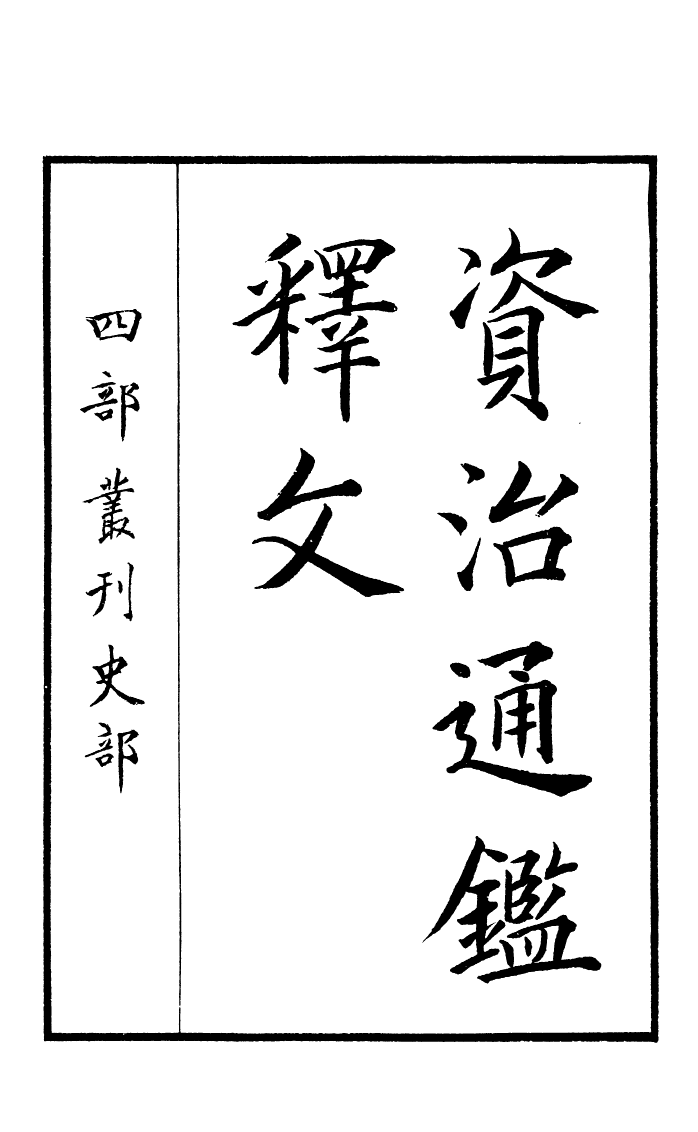 資治通鑑
釋文
四部叢刊史部